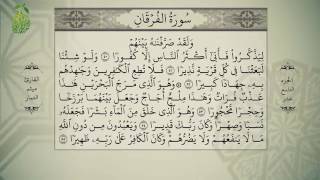 سُورَةُ الفُرْقَانِ
وَلَقَدْ صَرَّفْنَاهُ بَيْنَهُمْ
لِيَذَّكَّرُوا فَأَبَىٰ أَكْثَرُ النَّاسِ إِلَّا كُفُورًا ۝٥٠ وَلَوْ شِئْنَا
لَبَعَثْنَا فِي كُلِّ قَرْيَةٍ نَذِيرًا ۝٥١ فَلَا تُطِعِ الْكَافِرِينَ وَجَاهِدْهُمْ
بِهِ جِهَادًا كَبِيرًا ۝٥٢ وَهُوَ الَّذِي مَرَجَ الْبَحْرَيْنِ هَٰذَا
عَذْبٌ فُرَاتٌ وَهَٰذَا مِلْحٌ أُجَاجٌ وَجَعَلَ بَيْنَهُمَا بَرْزَخًا
وَحِجْرًا مَحْجُورًا ۝٥٣ وَهُوَ الَّذِي خَلَقَ مِنَ الْمَاءِ بَشَرًا فَجَعَلَهُ
نَسَبًا وَصِهْرًا وَكَانَ رَبُّكَ قَدِيرًا ۝٥٤ وَيَعْبُدُونَ مِنْ دُونِ اللَّهِ
مَا لَا يَنْفَعُهُمْ وَلَا يَضُرُّهُمْ وَكَانَ الْكَافِرُ عَلَىٰ رَبِّهِ ظَهِيرًا ۝٥٥
الجزء
التاسع
عشر
القارئ
ميثم
التمار